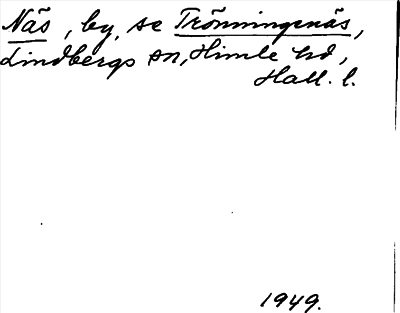 Näs, by, se Trönningenäs,
Lindbergs sn, Himle hd,
Hall. l.
1949.